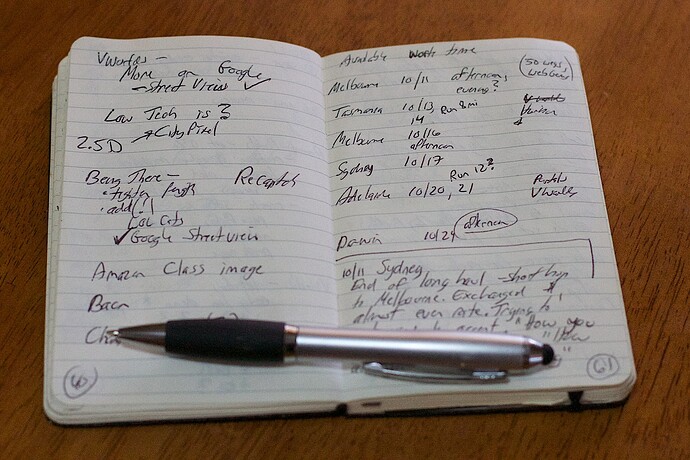 VWorlds -
More on Google
- Street View ✓
Low Tech is ?
→ CityPixel
2.5D
Being There -
Recaptcha
• add [!]
LOL Cats
✓ Google Streetview
Amazon Class image
Bacn
60
Available Work time
(50 ways,
Melbourne 10/11 afternoon,
evening?
Tasmania 10/13 Run 8 mi
14
Melbourne 10/16
afternoon
Sydney 10/17
Run 12?
Adelaide 10/20, 21
VWalls
Darwin 10/29 afternoon
10/11 Sydney
End of long haul - short hop
to Melbourne. Exchanged $
almost even rate. Trying to
accent "How you
61